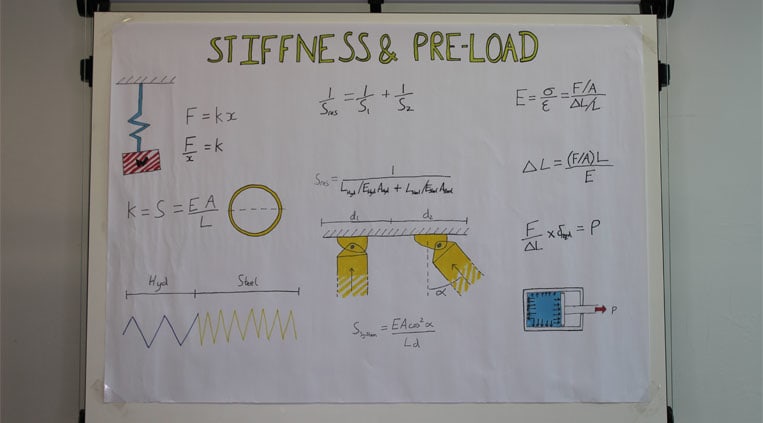 STIFFNESS & PRE-LOAD
F = kx
F/x = k
K = S = EA/L
Hyd Steel
1/Sres = 1/S1 + 1/S2
Sres = 1/(LHyd/EHyd AHyd + LSteel/ESteel ASteel)
d1 d2
α
SSystem = EA cos²α/Ld
E = σ/ε = F/A/ΔL/L
ΔL = (F/A)L/E
F/ΔL × = P
P